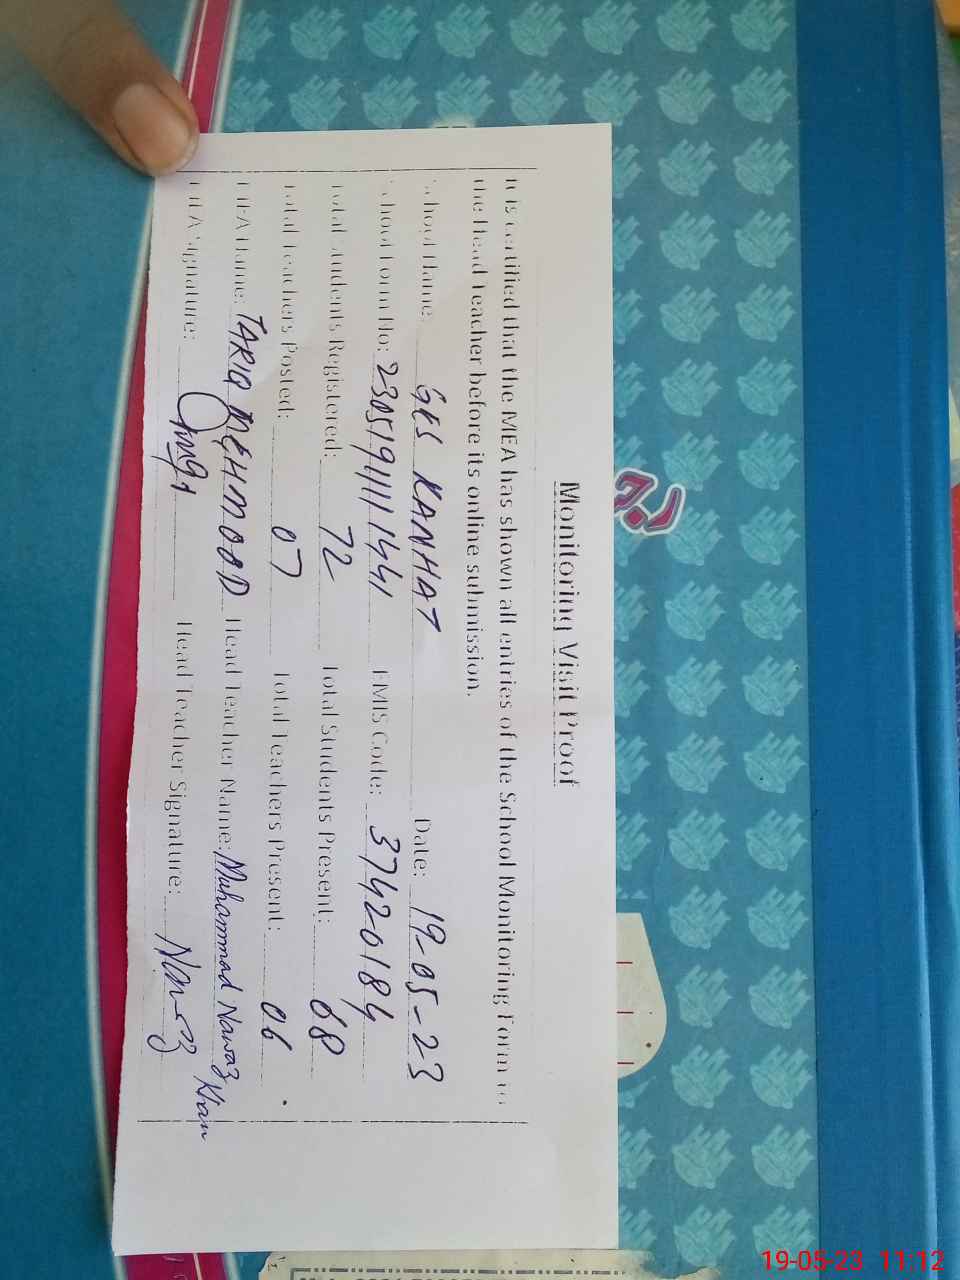 Monitoring Visit Proof
It is certified that the MEA has shown all entries of the School Monitoring Form to
the Head Teacher before its online submission.
School Name: GES KAMHAT Date: 19-05-23
School Form No: 230519111441 EMIS Code: 37420184
Total Students Registered: 72 Total Students Present: 68
Total Teachers Posted: 07 Total Teachers Present: 06
MEA Name: TARIQ MEHMOOD Head Teacher Name: Muhammad Nawaz Khan
MEA Signature: Head Teacher Signature: Nawaz
19-05-23 11:12